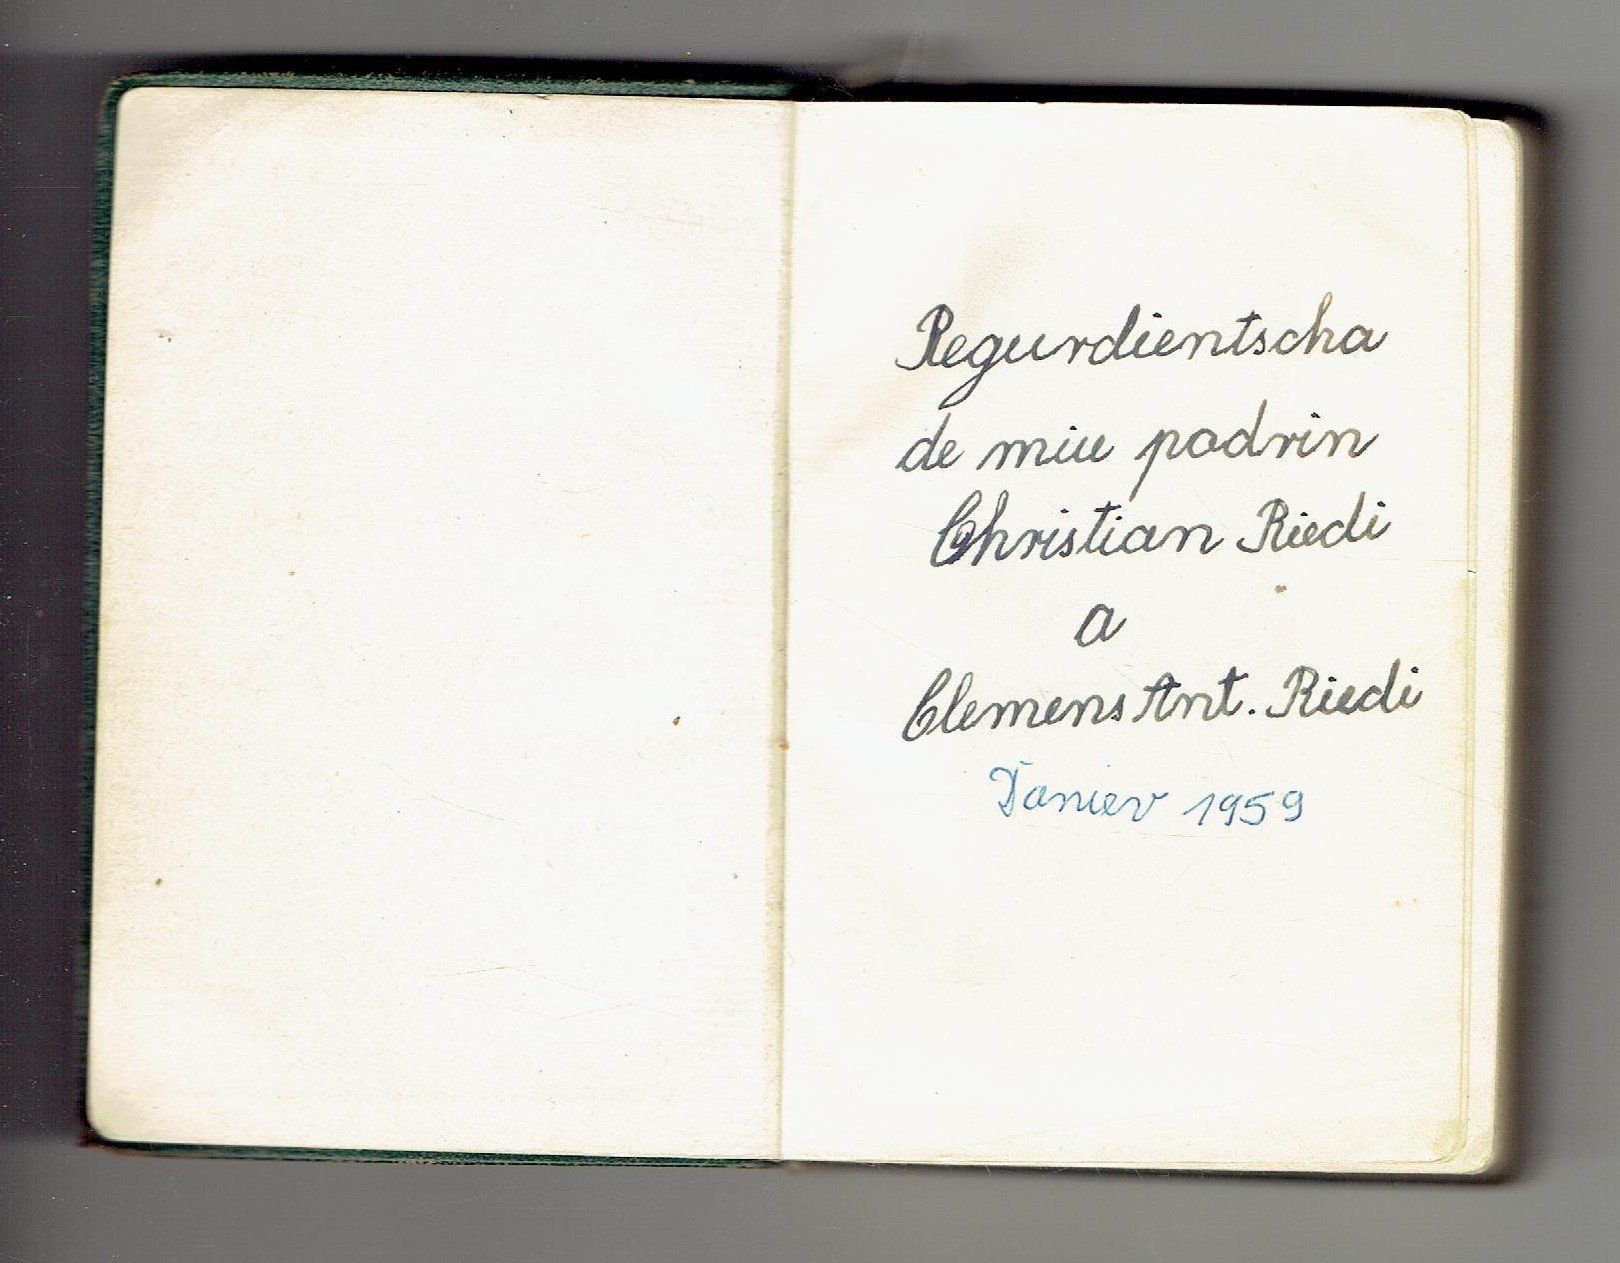 Regurdientscha
de miu padrin
Christian Riedi
a
Clemens Ant. Riedi
Daniev 1959